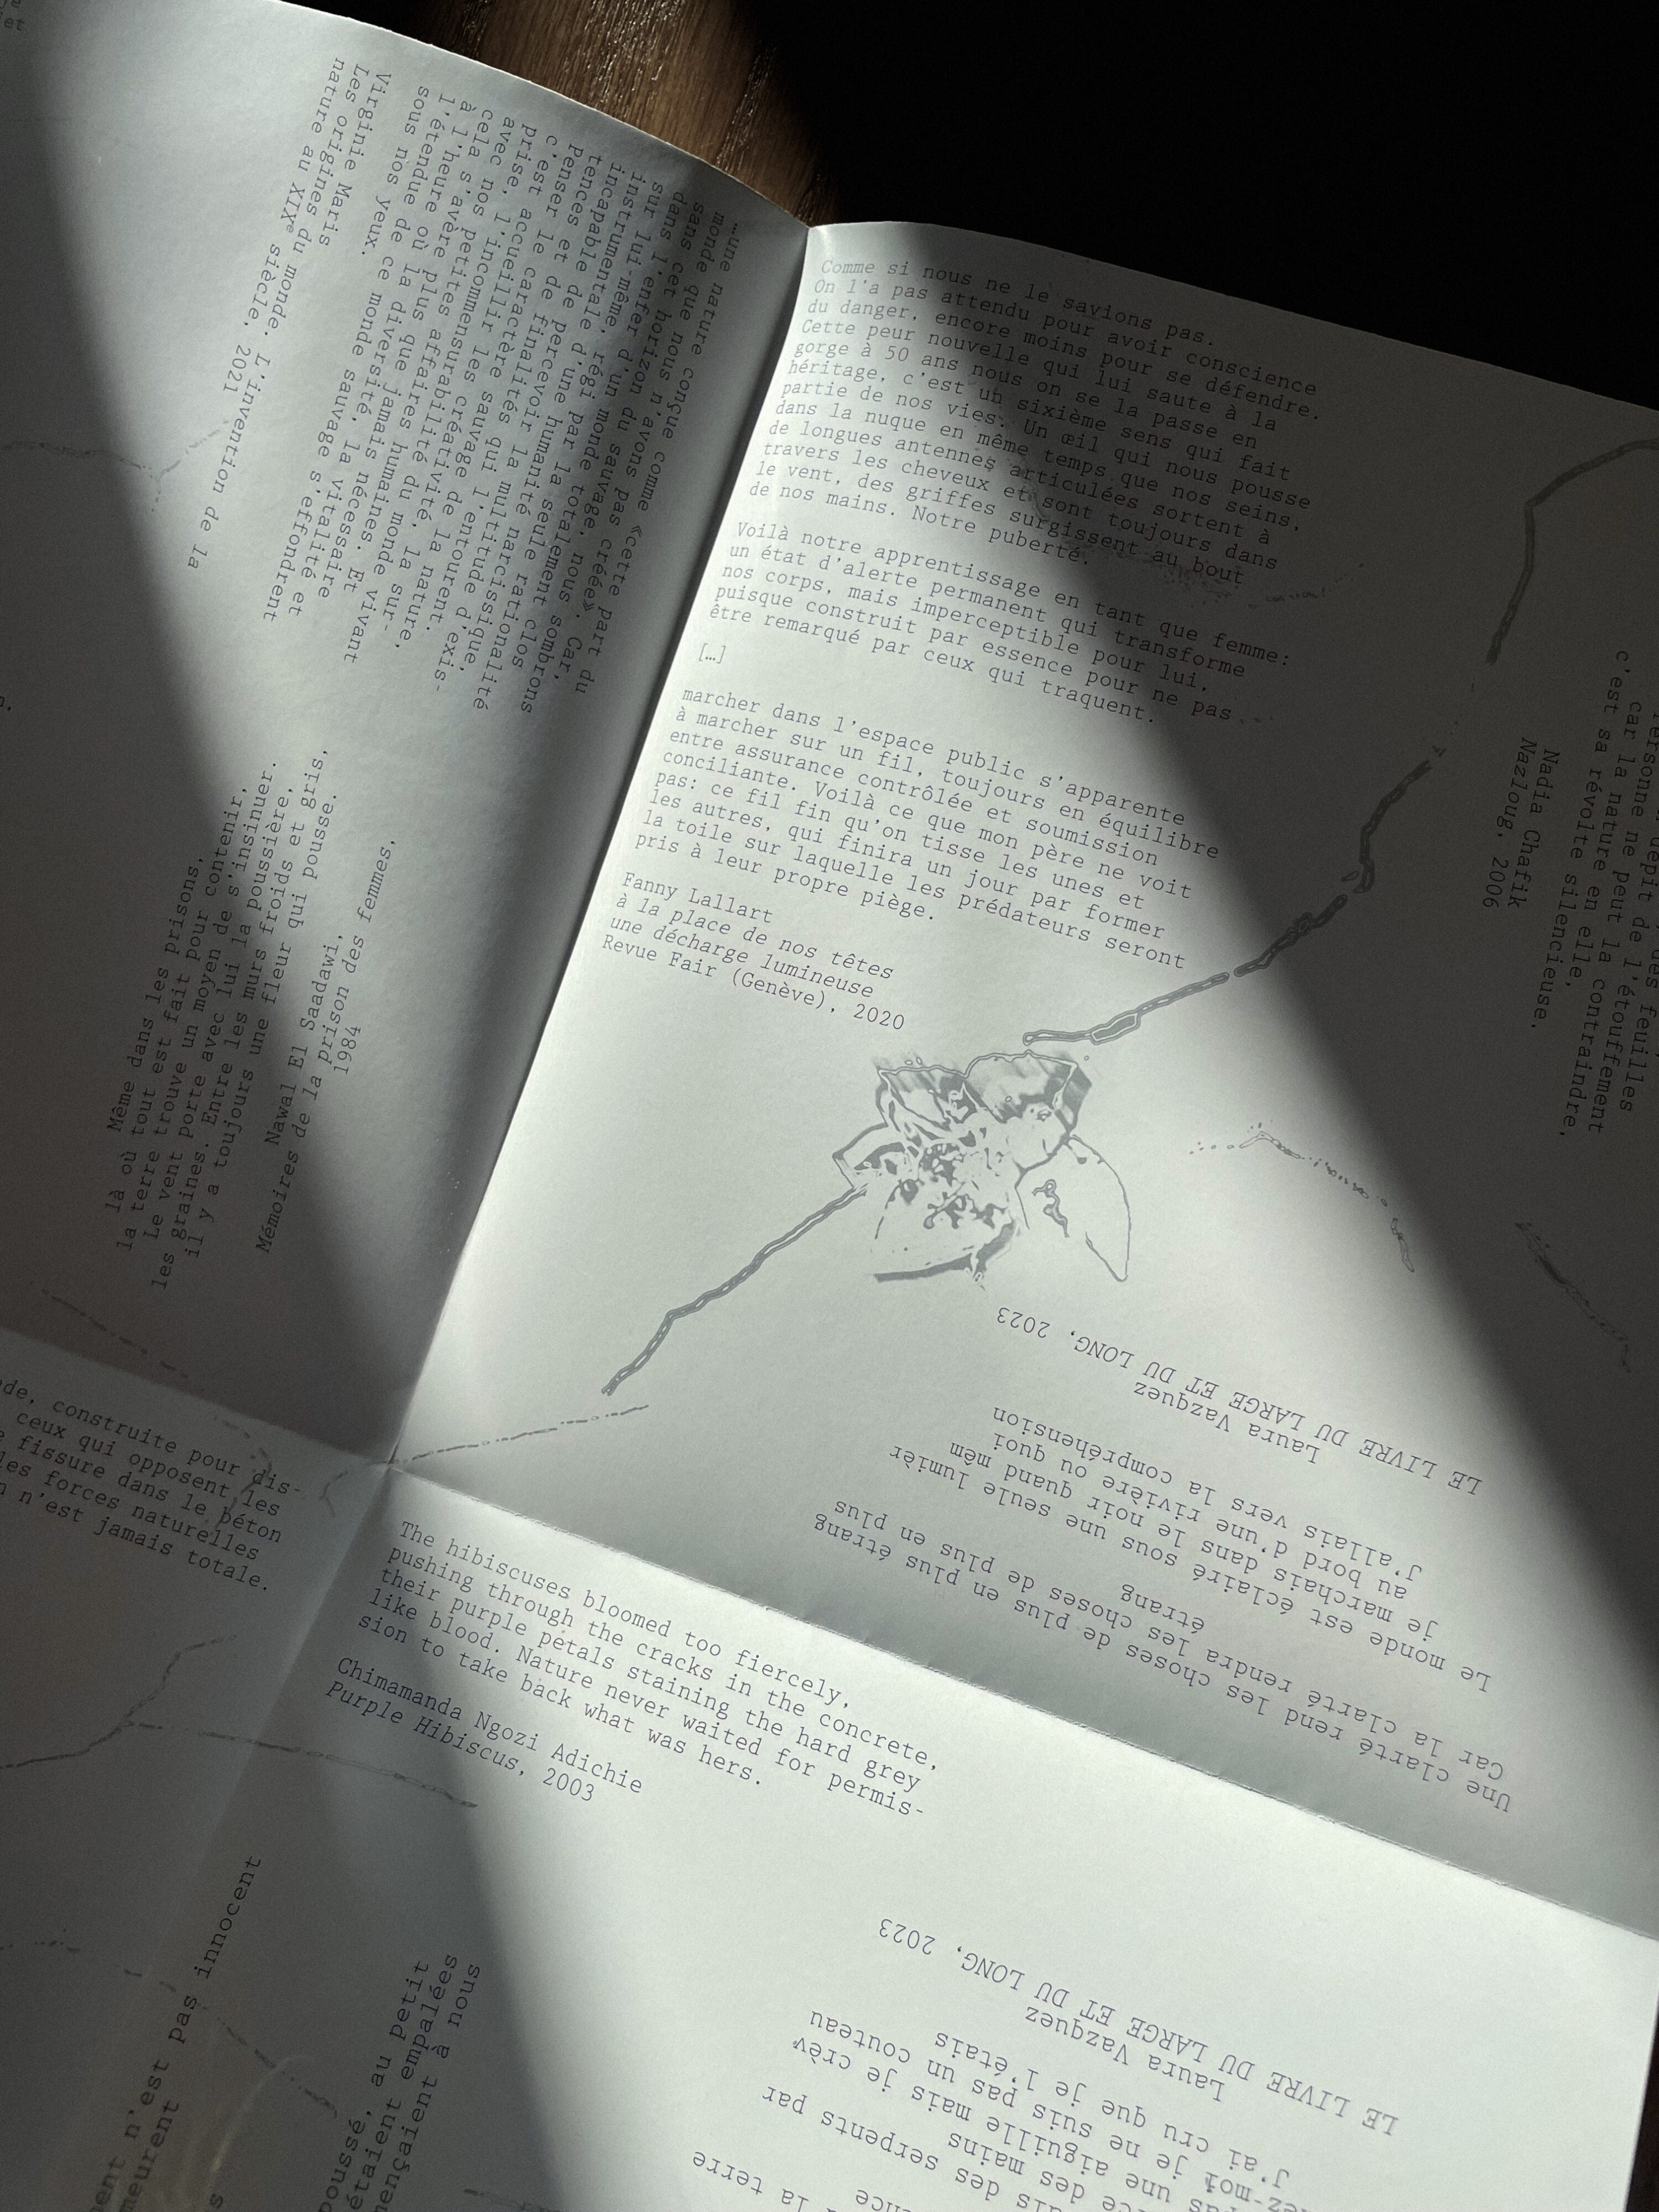 et
…une nature conçue comme «cette part du
monde que nous n'avons pas créée». Car,
sans cet horizon du sauvage, nous sombrons
dans l'enfer d'un monde totalement clos
sur lui-même, régi par la seule rationalité
instrumentale d'une humanité narcissique,
incapable de percevoir la multitude d'exis-
tences et de finalités qui l'entourent.
Penser le caractère sauvage de la nature,
c'est accueillir les créativité, la sur-
prise, l'incommensurabilité du monde vivant
avec nos petites affaires humaines. Et
cela s'avère plus que jamais nécessaire
à l'heure où la diversité, la vitalité et
l'étendue de ce monde sauvage s'effondrent
sous nos yeux.
Virginie Maris
Les origines du monde. L'invention de la
nature au XIXe siècle, 2021
Comme si nous ne le savions pas.
On l'a pas attendu pour avoir conscience
du danger, encore moins pour se défendre.
Cette peur nouvelle qui lui saute à la
gorge à 50 ans nous on se la passe en
héritage, c'est un sixième sens qui fait
partie de nos vies. Un œil qui nous pousse
dans la nuque en même temps que nos seins,
de longues antennes articulées sortent à
travers les cheveux et sont toujours dans
le vent, des griffes surgissent au bout
de nos mains. Notre puberté.
Voilà notre apprentissage en tant que femme:
un état d'alerte permanent qui transforme
nos corps, mais imperceptible pour lui,
puisque construit par essence pour ne pas
être remarqué par ceux qui traquent.
[…]
marcher dans l'espace public s'apparente
à marcher sur un fil, toujours en équilibre
entre assurance contrôlée et soumission
conciliante. Voilà ce que mon père ne voit
pas: ce fil fin qu'on tisse les unes et
les autres, qui finira un jour par former
la toile sur laquelle les prédateurs seront
pris à leur propre piège.
Fanny Lallart
à la place de nos têtes
une décharge lumineuse
Revue Fair (Genève), 2020
dépit de des feuilles
Personne ne peut l'étouffement
car la nature ne peut la contraindre,
c'est sa révolte en elle, silencieuse.
Nadia Chafik
Nazloug, 2006
Même dans les prisons,
là où tout est fait pour contenir,
la terre trouve un moyen de s'insinuer.
Le vent porte avec lui la poussière,
les graines. Entre les murs froids et gris,
il y a toujours une fleur qui pousse.
Nawal El Saadawi,
Mémoires de la prison des femmes,
1984
Une clarté rend les choses de plus en plus étrang
Car la clarté rendra les choses de plus en plus
étrang
Le monde est éclairé sous une seule lumièr
je marchais dans le noir quand mêm
au bord d'une rivière ou quoi
J'allais vers la compréhension
Laura Vazquez
LE LIVRE DU LARGE ET DU LONG, 2023
construite pour dis-
ceux qui opposent les
fissure dans le béton
les forces naturelles
n'est jamais totale.
The hibiscuses bloomed too fiercely,
pushing through the cracks in the concrete,
their purple petals staining the hard grey
like blood. Nature never waited for permis-
sion to take back what was hers.
Chimamanda Ngozi Adichie
Purple Hibiscus, 2003
n'est pas innocent
meurent
poussé, au petit
étaient empalées
mençaient à nous
la terre
des serpents par
des mains
une aiguille mais je crèv
je ne suis pas un couteau
J'ai cru que je l'étais
Laura Vazquez
LE LIVRE DU LARGE ET DU LONG, 2023